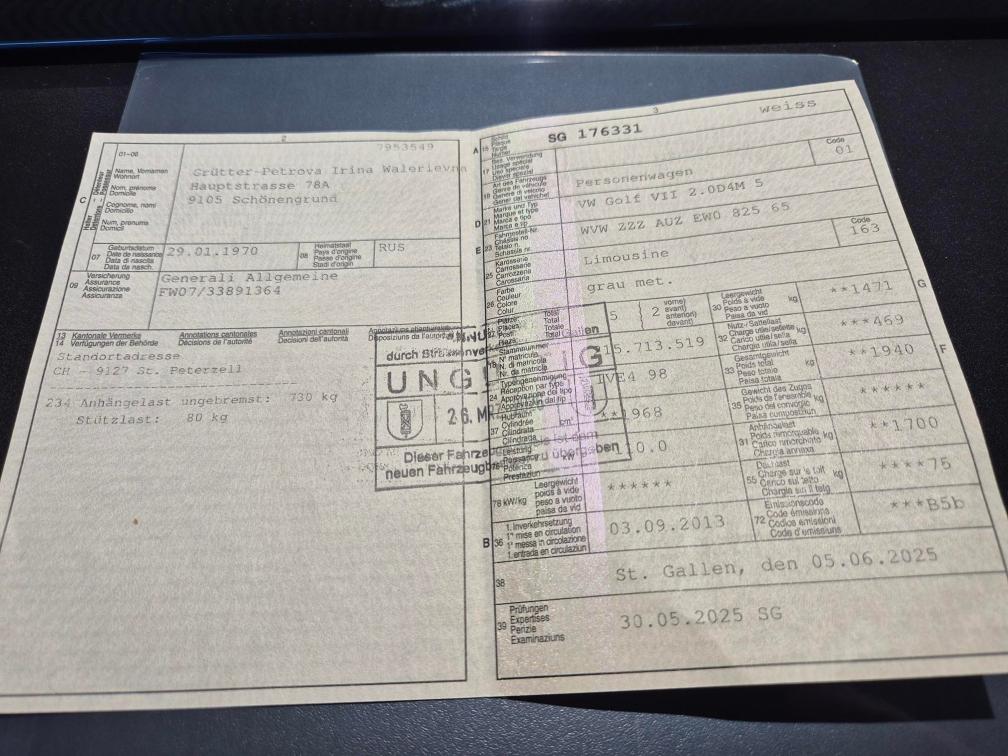 2
7953549
01-06
Name, Vornamen
Wohnort
Nom, prénoms
Domicile
Cognome, nomi
Domicilio
Num, prenums
Domicil
C
Grütter-Petrova Irina Walerievna
Hauptstrasse 78A
9105 Schönengrund
07
Geburtsdatum
Date de naissance
Data di nascita
Data da nasch.
29.01.1970
08
Heimatstaat
Pays d'origine
Paese d'origine
Stadi d'origin
RUS
09
Versicherung
Assurance
Assicurazione
Assicuranza
Generali Allgemeine
FW07/33891364
13 Kantonale Vermerke
14 Verfügungen der Behörde
Annotations cantonales
Décisions de l'autorité
Annotazioni cantonali
Decisioni dell'autorità
Standortadresse
CH - 9127 St. Peterzell
234 Anhängelast ungebremst: 730 kg
Stützlast: 80 kg
durch
UNG
G
26. M
Dieser Fahrze
übergeben
neuen Fahrzeug
3
A 15
Schild
Plaque
Targa
SG 176331
weiss
17
Code
01
Personenwagen
D 21
Marke und Typ
Marque et type
Marca e tipo
Marca e tip
VW Golf VII 2.0D4M 5
E 23
Fahrgestell-Nr.
Châssis no
Telaio n.
Schassis nr.
WVW ZZZ AUZ EW0 825 65
25
Karosserie
Carrosserie
Carrozzeria
Carossaria
Limousine
Code
163
26
Farbe
Couleur
Colore
Colur
grau met.
5
2
vorne)
avant)
anteriori)
davant)
30
Leergewicht
Poids à vide
Peso a vuoto
Paisa da vid
kg
**1471
G
15.713.519
32
Nutz-/Sattellast
kg
***469
24
Typengenehmigung
Réception par type
Approvazione del tipo
Approvaziun dal tip
1VE4 98
33
Gesamtgewicht
Poids total
Peso totale
Paisa totala
kg
**1940
F
37
Hubraum
Cylindrée
Cilindrata
Cilindrada
cm³
**1968
35
Gewicht des Zuges
Poids de l'ensemble
Peso del convoglio
Paisa cumposiziun
kg
******
76
Leistung
kW
10.0
31
Anhängelast
Poids remorquable
Carico rimorchiato
Chargia annexa
kg
**1700
78 kW/kg
Leergewicht
poids à vide
peso a vuoto
paisa da vid
******
55
Dachlast
Charge sur le toit
Carico sul tetto
Chargia sin il tetg
kg
****75
B 36
1. Inverkehrsetzung
1re mise en circulation
1a messa in circolazione
1. entrada en circulaziun
03.09.2013
72
Emissionscode
Code émissions
Codice emissioni
Code d'emissiuns
***B5b
38
St. Gallen, den 05.06.2025
39
Prüfungen
Expertises
Perizie
Examinaziuns
30.05.2025 SG